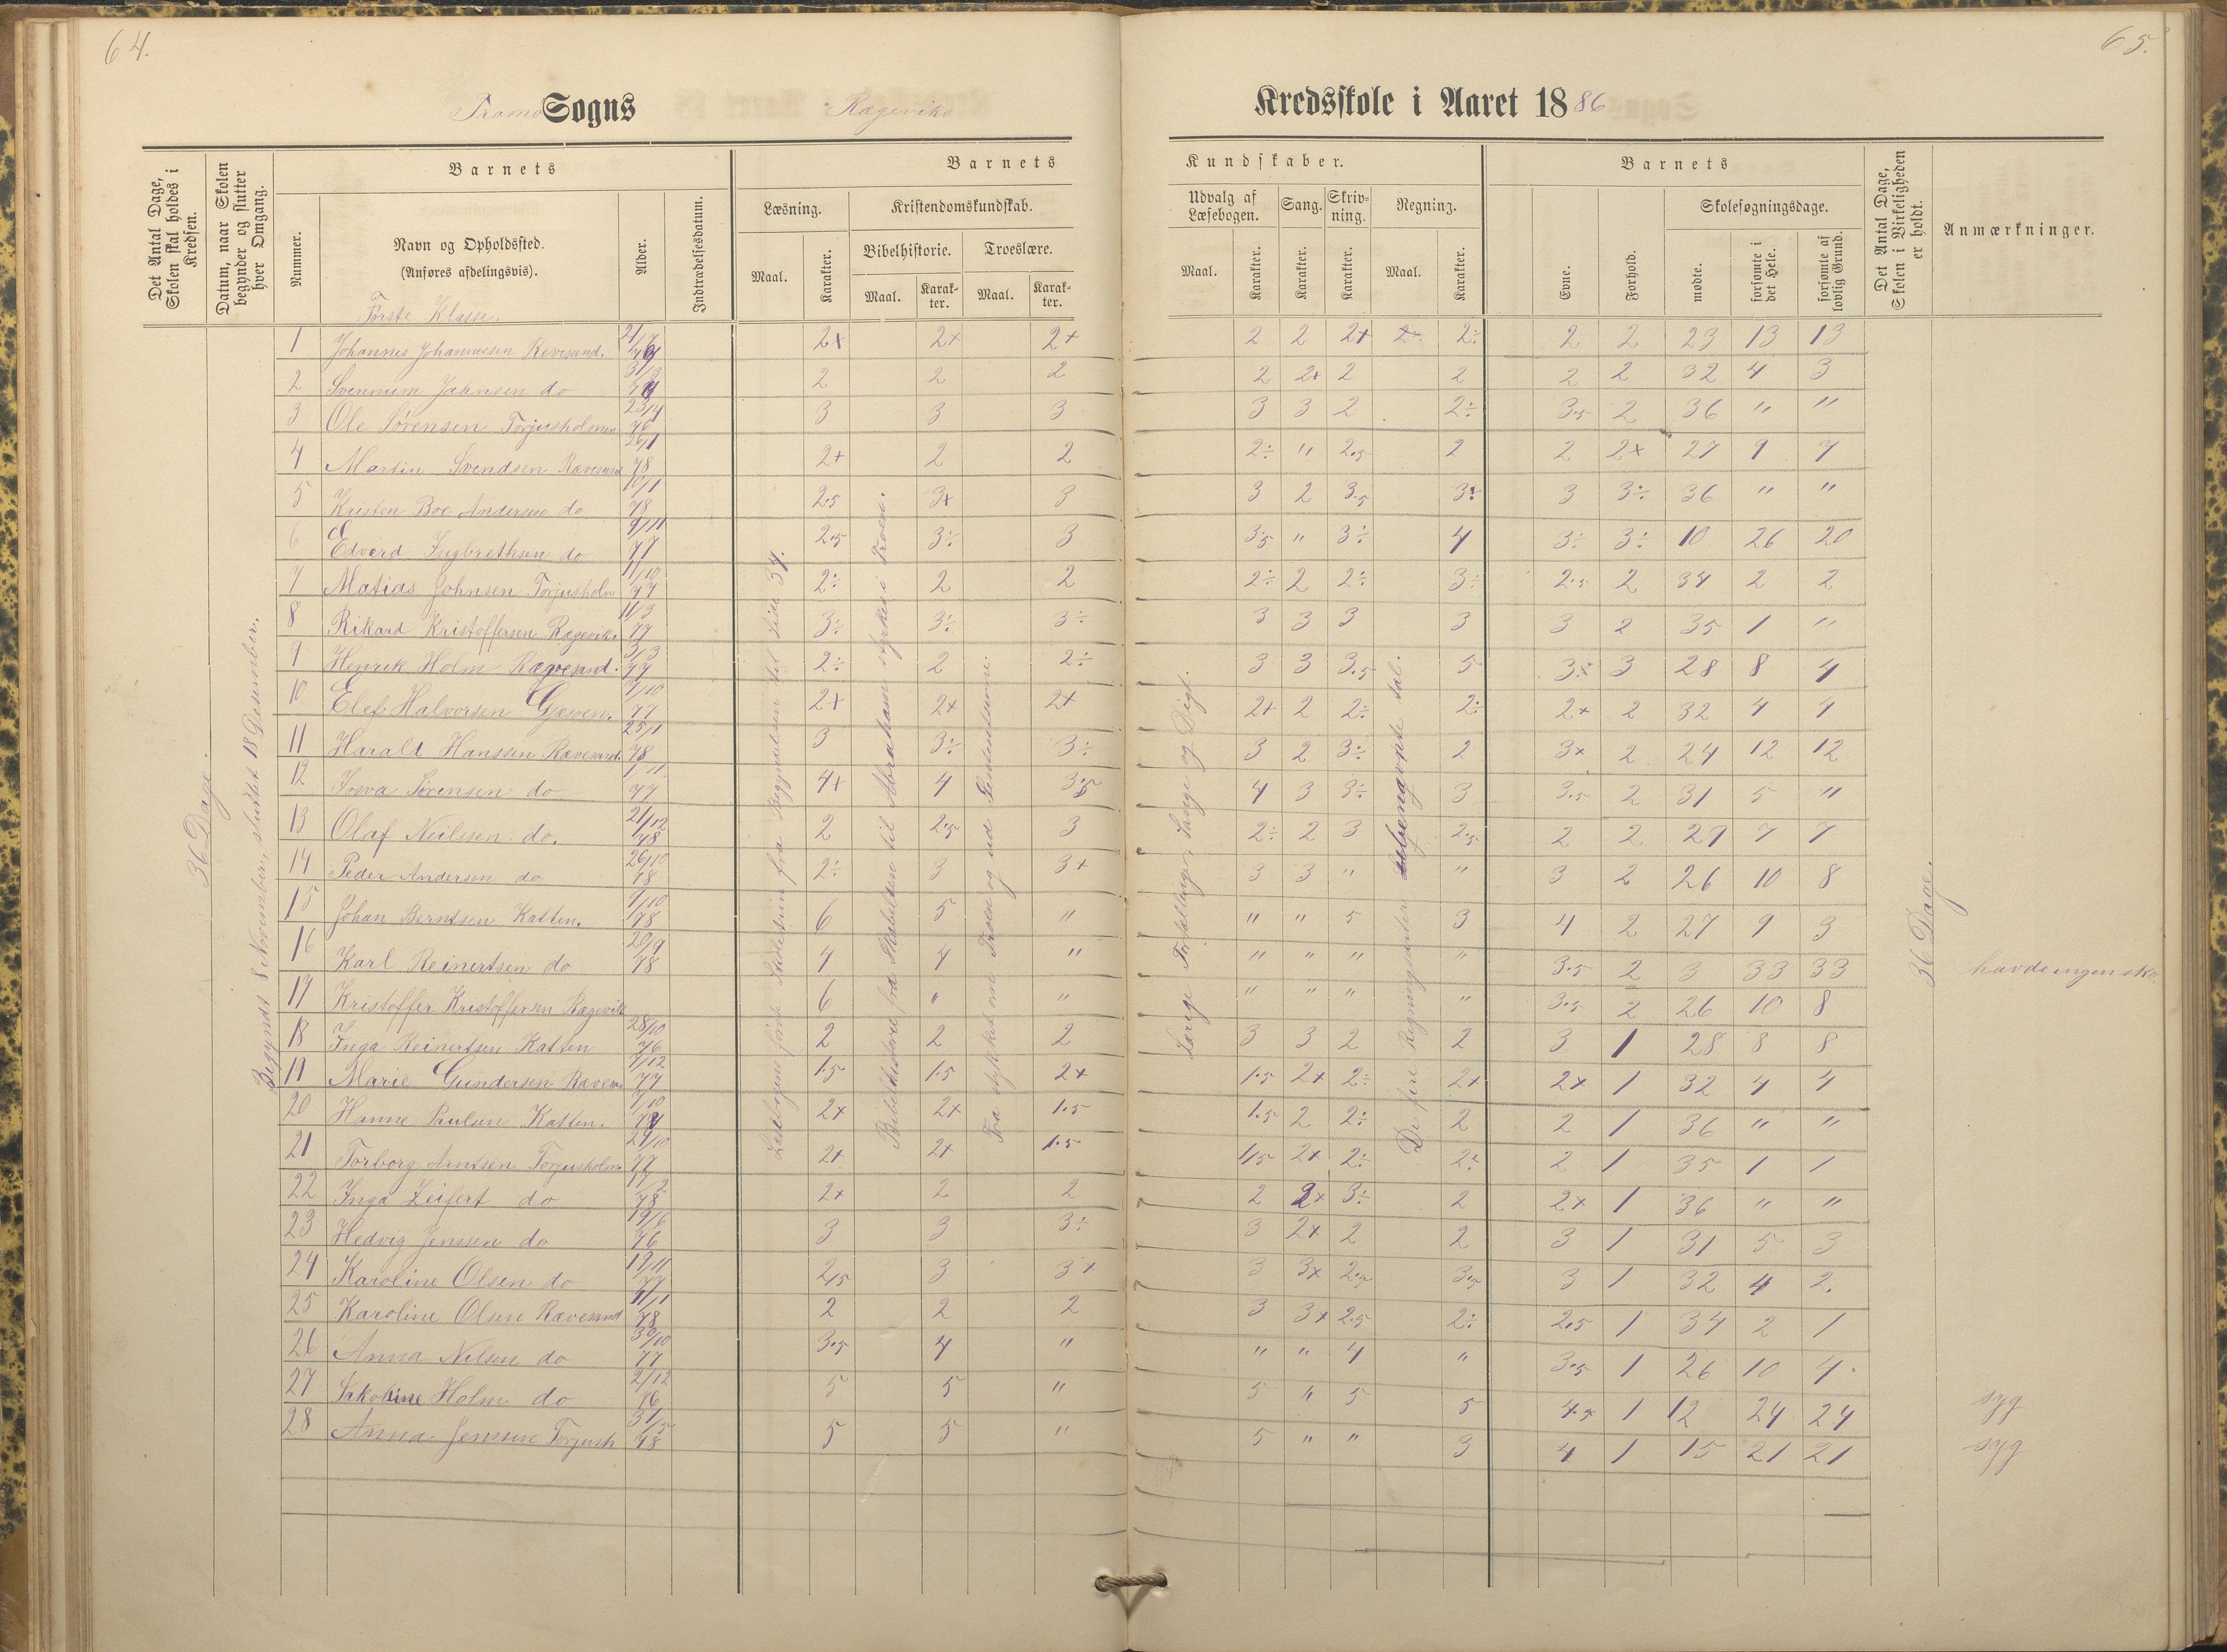 64.
65.
Tromø Sogns Rægeviks Kredsskole i Aaret 1886
Det Antal Dage, Skolen skal holdes i Kredsen.
Datum, naar Skolen begynder og slutter hver Omgang.
Barnets
Nummer.
Navn og Opholdssted.
(Anføres afdelingsvis).
Alder.
Indtrædelsesdatum.
Barnets Kundskaber.
Læsning.
Maal.
Karakter.
Kristendomskundskab.
Bibelhistorie.
Maal.
Karakter.
Troeslære.
Maal.
Karakter.
Udvalg af Læsebogen.
Maal.
Karakter.
Sang.
Karakter.
Skrivning.
Karakter.
Regning.
Maal.
Karakter.
Barnets
Evne.
Forhold.
Skolesøgningsdage.
mødte.
forsømte i det Hele.
forsømte af lovlig Grund.
Det Antal Dage, Skolen i Virkeligheden er holdt.
Anmærkninger.
36 Dage.
Begyndt 8 November, sluttet 18 Desember.
Første Klasse.
1 Johannes Johannessen Revesand. 2+ 2+ 2+ 2 2 2+ 2÷ 2÷ 2 2 23 13 13
2 Svennum Jahnsen do 2 2 2 2 2+ 2 2 2 2 32 4 3
3 Ole Sørensen Torjusholmen 23/4 76 3 3 3 3 3 2 2÷ 3.5 2 36 " "
4 Martin Svendsen Rævesand 26/1 78 2+ 2 2 2÷ " 2.5 2 2 2+ 27 9 7
5 Kristen Boe Andersen do 10/1 78 2.5 3+ 3 3 2 3.5 3÷ 3 3÷ 36 " "
6 Edvard Ingbrethsen do 9/11 77 2.5 3÷ 3 3.5 " 3÷ 4 3÷ 3÷ 10 26 20
7 Matias Johnsen Torjusholm 11/10 77 2÷ 2 2 2÷ 2 2÷ 3÷ 2.5 2 34 2 2
8 Rikard Kristoffersen Rægevik. 11/3 77 3÷ 3÷ 3÷ 3 3 3 3 3 2 35 1 "
9 Henrik Holm Rægvesand. 3/3 77 2÷ 2 2÷ 3 3 3.5 5 3.5 3 28 8 4
10 Elef Halvorsen Gjesøen. 7/10 77 2+ 2+ 2+ 2+ 2 2÷ 2÷ 2+ 2 32 4 4
11 Harald Hanssen Rævesand. 25/1 78 3 3÷ 3÷ 3 2 3÷ 2 3+ 2 24 12 12
12 Josva Sørensen do 1/11 77 4+ 4 3.5 4 3 3÷ 3 3.5 2 31 5 "
13 Olaf Neilssen do. 21/12 78 2 2.5 3 2÷ 2 3 2.5 2 2 29 7 7
14 Peder Andersen do 26/10 78 2÷ 3 3+ 3 3 " " 3 2 26 10 8
15 Johan Berntsen Katten. 9/10 78 6 5 " " " 5 3 4 2 27 9 3
16 Karl Reinertsen do 20/9 78 4 4 " " " " " 3.5 2 3 33 33 havde ingen sko
17 Kristoffer Kristoffersen Rægevik 6 " " " " " " 3.5 2 26 10 8
18 Inga Reinertsen Katten 28/10 76 2 2 2 3 3 2 2 3 1 28 8 8
19 Marie Gundersen Ræves 7/12 77 1.5 1.5 2+ 1.5 2+ 2÷ 2+ 2+ 1 32 4 4
20 Hanne Paulsen Katten. 2+ 2+ 1.5 1.5 2 2÷ 2 2 1 36 " "
21 Torborg Arntsen Torjusholm 29/10 77 2+ 2+ 1.5 1.5 2+ 2÷ 2÷ 2 1 35 1 1
22 Inga Leifert do 17/2 78 2+ 2 2 2 2+ 3÷ 2 2+ 1 36 " "
23 Hedvig Jenssen do 19/6 76 3 3 3÷ 3 2+ 2 2 3 1 31 5 3
24 Karoline Olsen do 19/11 77 2.5 3 3+ 3 3+ 2.5 3.5 3 1 32 4 2.
25 Karoline Olsen Rævesand 4/11 78 2 2 2 3 3+ 2.5 2÷ 2.5 1 34 2 1
26 Anna Nilsen do 30/10 77 3.5 4 " " " 4 " 3.5 1 26 10 4.
27 Jakobine Holm do 2/12 76 5 5 " 5 " 5 5 4.5 1 12 24 24 syg
28 Anna Jenssen Torjush 31/5 78 5 5 " 5 " " 3 4 1 15 21 21 syg
Læsebogens første Skoletrin fra Begyndelsen til Side 34.
Bibelhistorie fra Skabelsen til Abrahams styrkes i Troen.
Lærige Fortællinger, Sange og Digt.
De fire Regningsarter ubenævnte tal.
36 Dage.